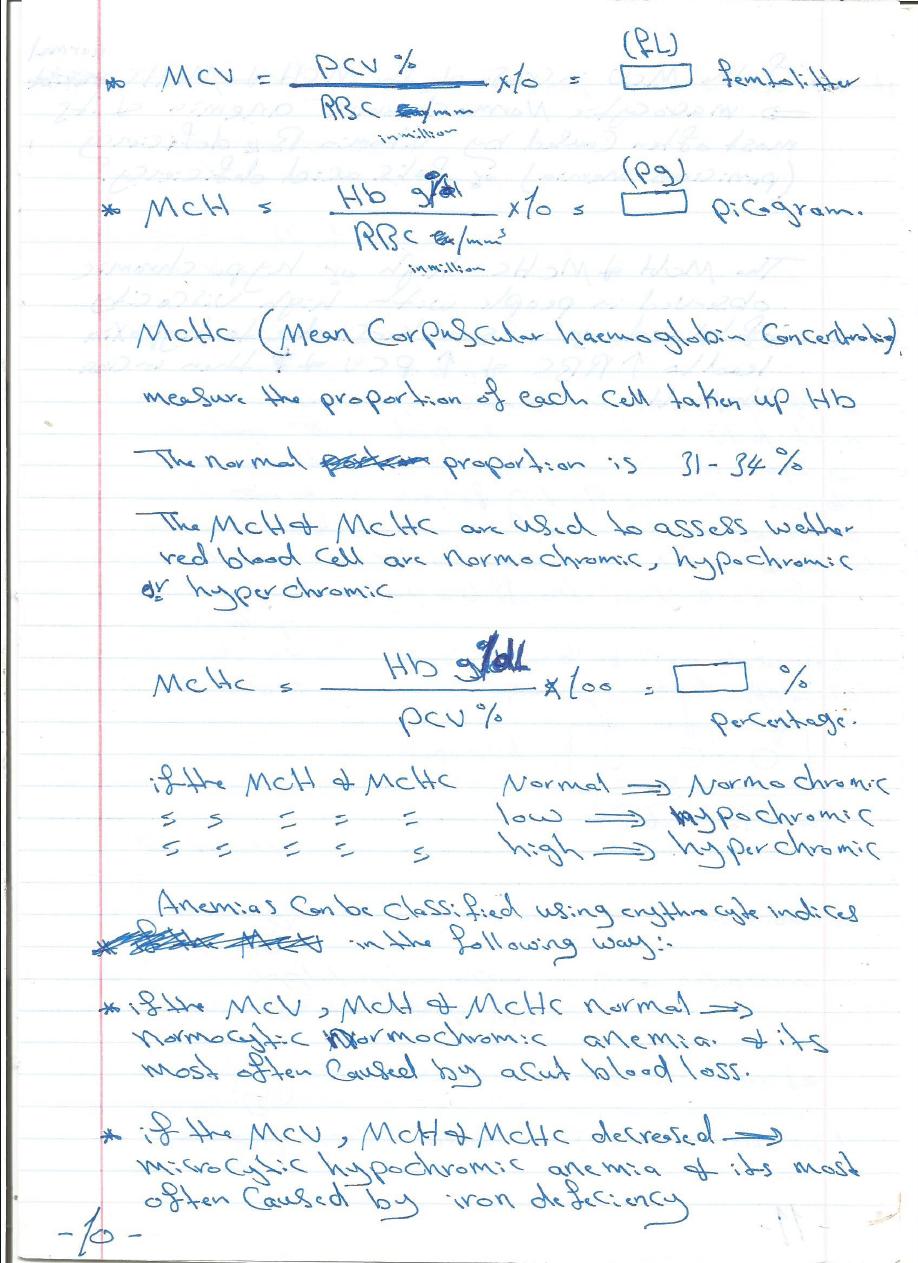 (fL)
* MCV = PCV % / RBC /mm x10 = femtolitter
in million
(pg)
* MCH = Hb g/dl / RBC /mm³ x10 = picogram.
in million
McHc (Mean Corpuscular haemoglobin Concentration)
measure the proportion of each cell taken up Hb
The normal proportion is 31-34 %
The McH & McHc are used to assess wether
red blood cell are normochromic, hypochromic
or hyperchromic
McHc = Hb g/dl / PCV % x100 = %
percentage.
if the McH & McHc Normal ⇒ Normochromic
= = = = = low ⇒ hypochromic
= = = = = high ⇒ hyperchromic
Anemias can be classified using erythrocyte indices
in the following way:-
* if the McV, McH & McHc normal ⇒
normocytic Normochromic anemia. & its
most often caused by acut blood loss.
* if the McV, McH & McHc decresed ⇒
microcytic hypochromic anemia & its most
often caused by iron defeciency
-10-